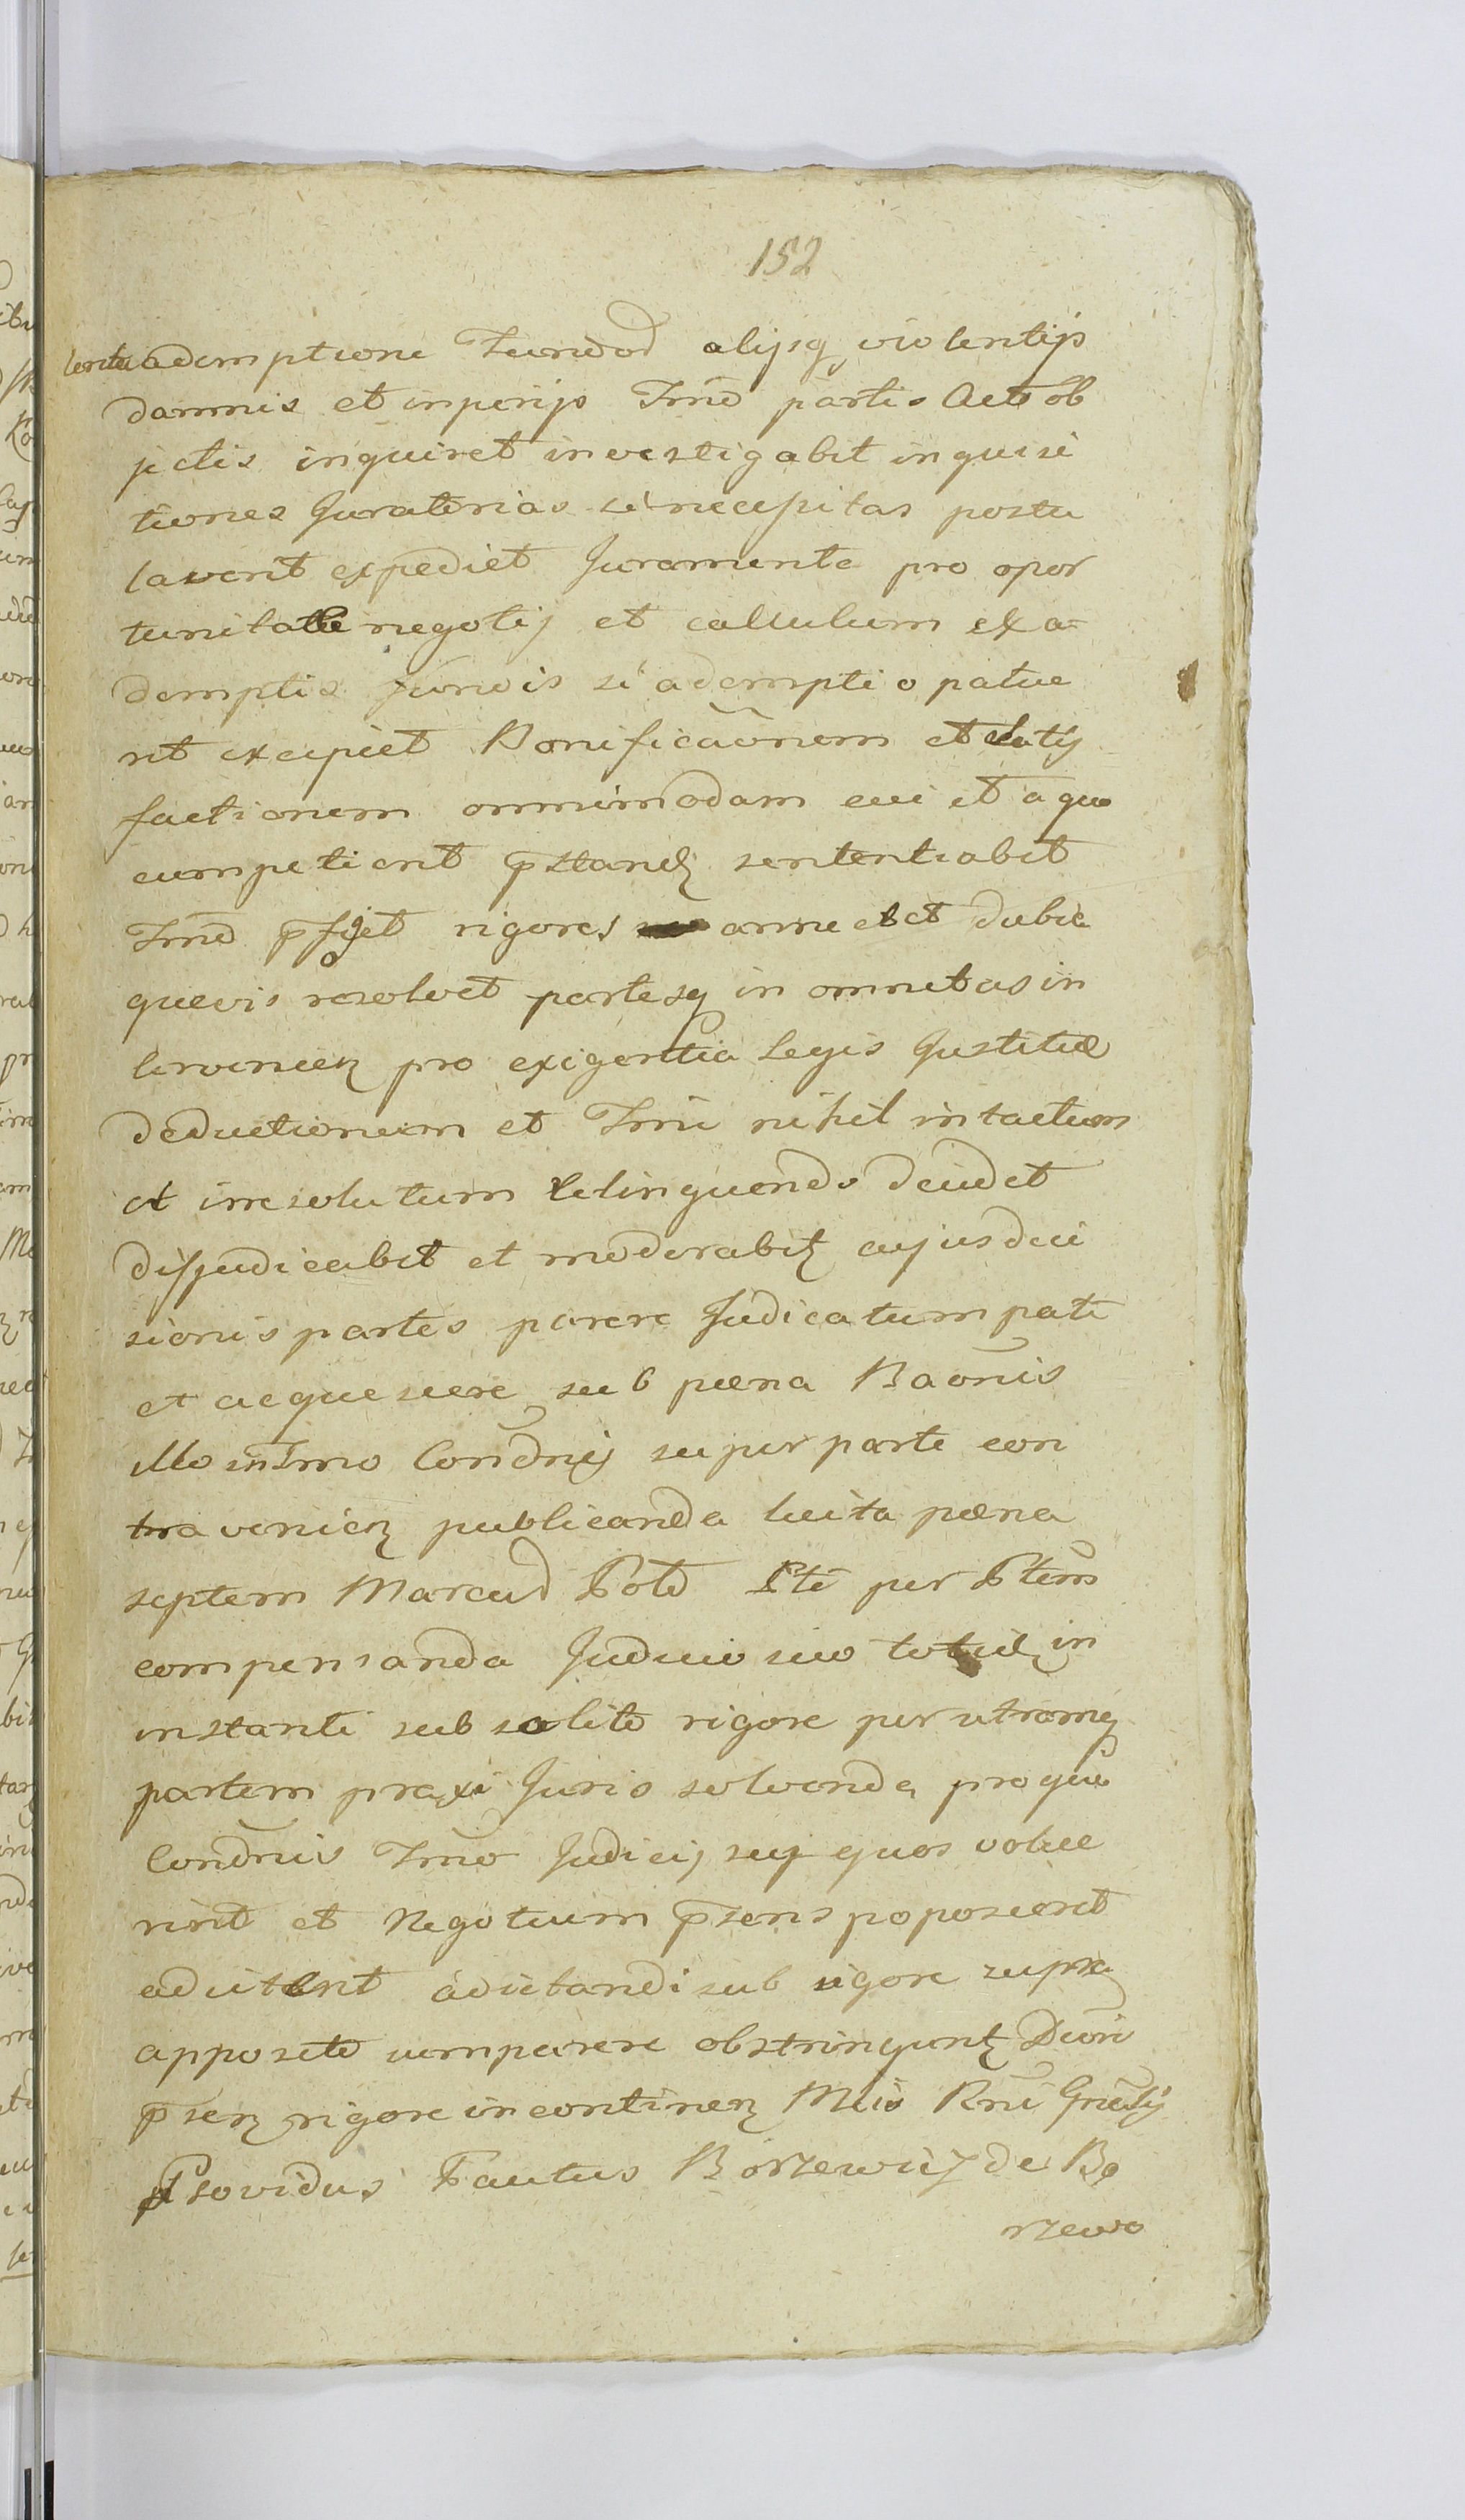 152
lenta ademptione Fundod alijsq violentijs
damnis et injurijs Imo partis Act ob
jctis inquiret investigabit inquisi
tiones Juratorias si necessitas postu
laverit expediet Juramenta pro opor
tunitate negotij et calculum ex a-
demptis fundis si ademptio patue
rit excipiet Bonificaonem et satis
factionem omnimodam cui et a quo
competierit pstandz sententiabit
Imo pfiget rigores annectet dubia
quevis resolvet partesq in omnibus in
tervenien pro exigentia Legis Justitiæ
deductionum et Imi nihil intactum
et irresolutum relinquendo decidet
disjudicabit et moderabitz cujus deci
sionis partes parere Judicatum pati
et acquiescere sub pœna Baonis
illo in Imo Condnij super parte con
travenien publicanda luita pœna
septem Marcud Polo Pti per Ptem
compensanda Judicio suo totidz in
instanti sub solito rigore per utramq
partem praxi Juris solvenda pro quo
Condnis Imo Judicij sui quos volue
rint et Negotium psens poposcerit
adcitent adcitandi sub rigore supra
apposito comparere obstringuntz Dcri
psen rigore in continen Mtis Rni Gnlis
Providus Fautus Borzewicz de Bo
rzewo